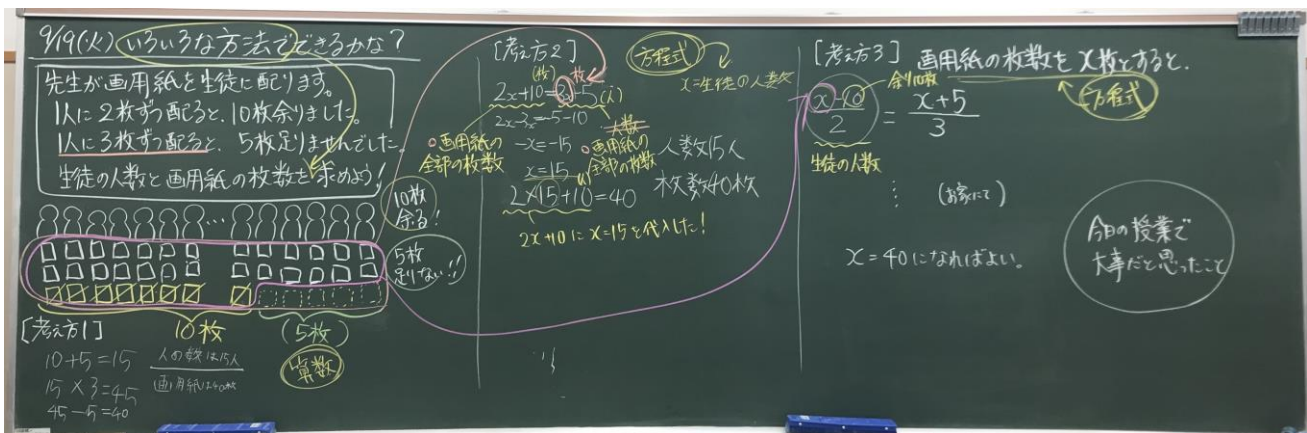 9/19(火) いろいろな方法でできるかな?
先生が画用紙を生徒に配ります。
1人に2枚ずつ配ると、10枚余りました。
1人に3枚ずつ配ると、5枚足りませんでした。
生徒の人数と画用紙の枚数を求めよう!
10枚
余る!
5枚
足りない!!
10枚
(5枚)
算数
[考え方1]
10+5=15
15×3=45
45-5=40
人の数は15人
画用紙は40枚
[考え方2]
方程式
x=生徒の人数
(枚)
枚
2x+10=3x-5
(人)
2x-3x=-5-10
-x=-15
x=15
2×15+10=40
2x+10にx=15を代入した!
画用紙の
全部の枚数
人数
画用紙の
全部の枚数
人数15人
枚数40枚
[考え方3] 画用紙の枚数をx枚とすると、
方程式
余り10枚
x-10/2 = x+5/3
生徒の人数
(お家にて)
x=40になればよい。
今日の授業で
大事だと思ったこと